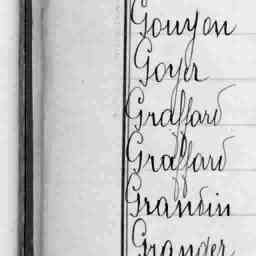 Gouyon
Goyer
Graffard
Graffard
Grandin
Granger